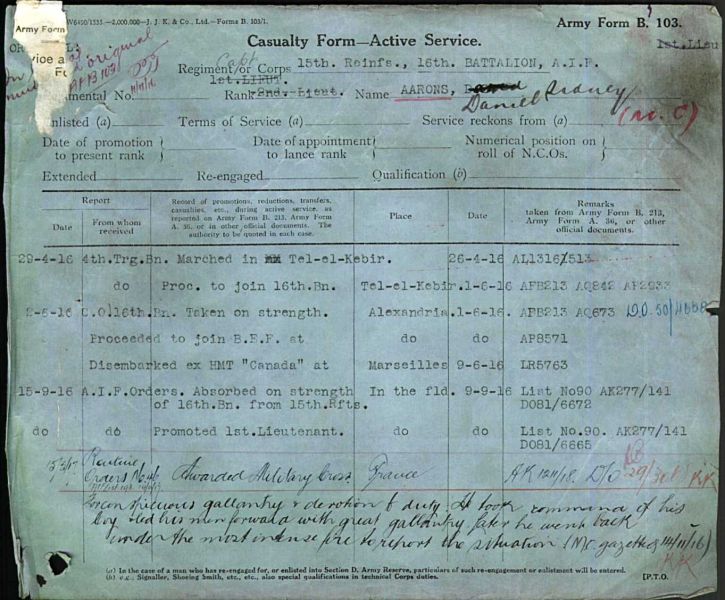 W6490/1555.—2,000,000—J. J. K. & Co., Ltd.—Forms B. 103/1.
Army Form
Army Form B. 103.
1st.Lieu
Casualty Form—Active Service.
Capt
Regiment or Corps 15th. Reinfs., 16th. BATTALION, A.I.F.
1st.LIEUT.
mental No. Rank 2nd.-Lieut. Name AARONS, David
Daniel Sidney
(M.C)
original
AFB 103
Enlisted (a) Terms of Service (a) Service reckons from (a)
Date of promotion to present rank
Date of appointment to lance rank
Numerical position on roll of N.C.Os.
Extended Re-engaged Qualification (b)
Report
Date
From whom received
Record of promotions, reductions, transfers, casualties, etc., during active service, as reported on Army Form B. 213, Army Form A. 36, or in other official documents. The authority to be quoted in each case.
Place
Date
Remarks
taken from Army Form B. 213, Army Form A. 36, or other official documents.
29-4-16 4th.Trg.Bn. Marched in Tel-el-Kebir. 26-4-16 AL1316/513
do Proc. to join 16th.Bn. Tel-el-Kebir. 1-6-16. AFB213 AQ842 AP2933
2-6-16 C.O.16th.Bn. Taken on strength. Alexandria. 1-6-16. AFB213 AQ673
Proceeded to join B.E.F. at do do AP8571
Disembarked ex HMT "Canada" at Marseilles 9-6-16 LR5763
15-9-16 A.I.F.Orders. Absorbed on strength In the fld. 9-9-16 List No90 AK277/141
of 16th.Bn. from 15th.Rfts. D081/6672
do do Promoted 1st.Lieutenant. do do List No.90. AK277/141
D081/6665
Routine
Orders Awarded Military Cross France
For conspicuous gallantry & devotion to duty. He took command of his
Coy & led his men forward with great gallantry later he went back
under the most intense fire to report the situation (M.C. gazetted 14/11/16)
(a) In the case of a man who has re-engaged for, or enlisted into Section D, Army Reserve, particulars of such re-engagement or enlistment will be entered.
(b) e.g., Signaller, Shoeing Smith, etc., etc., also special qualifications in technical Corps duties.
[P.T.O.